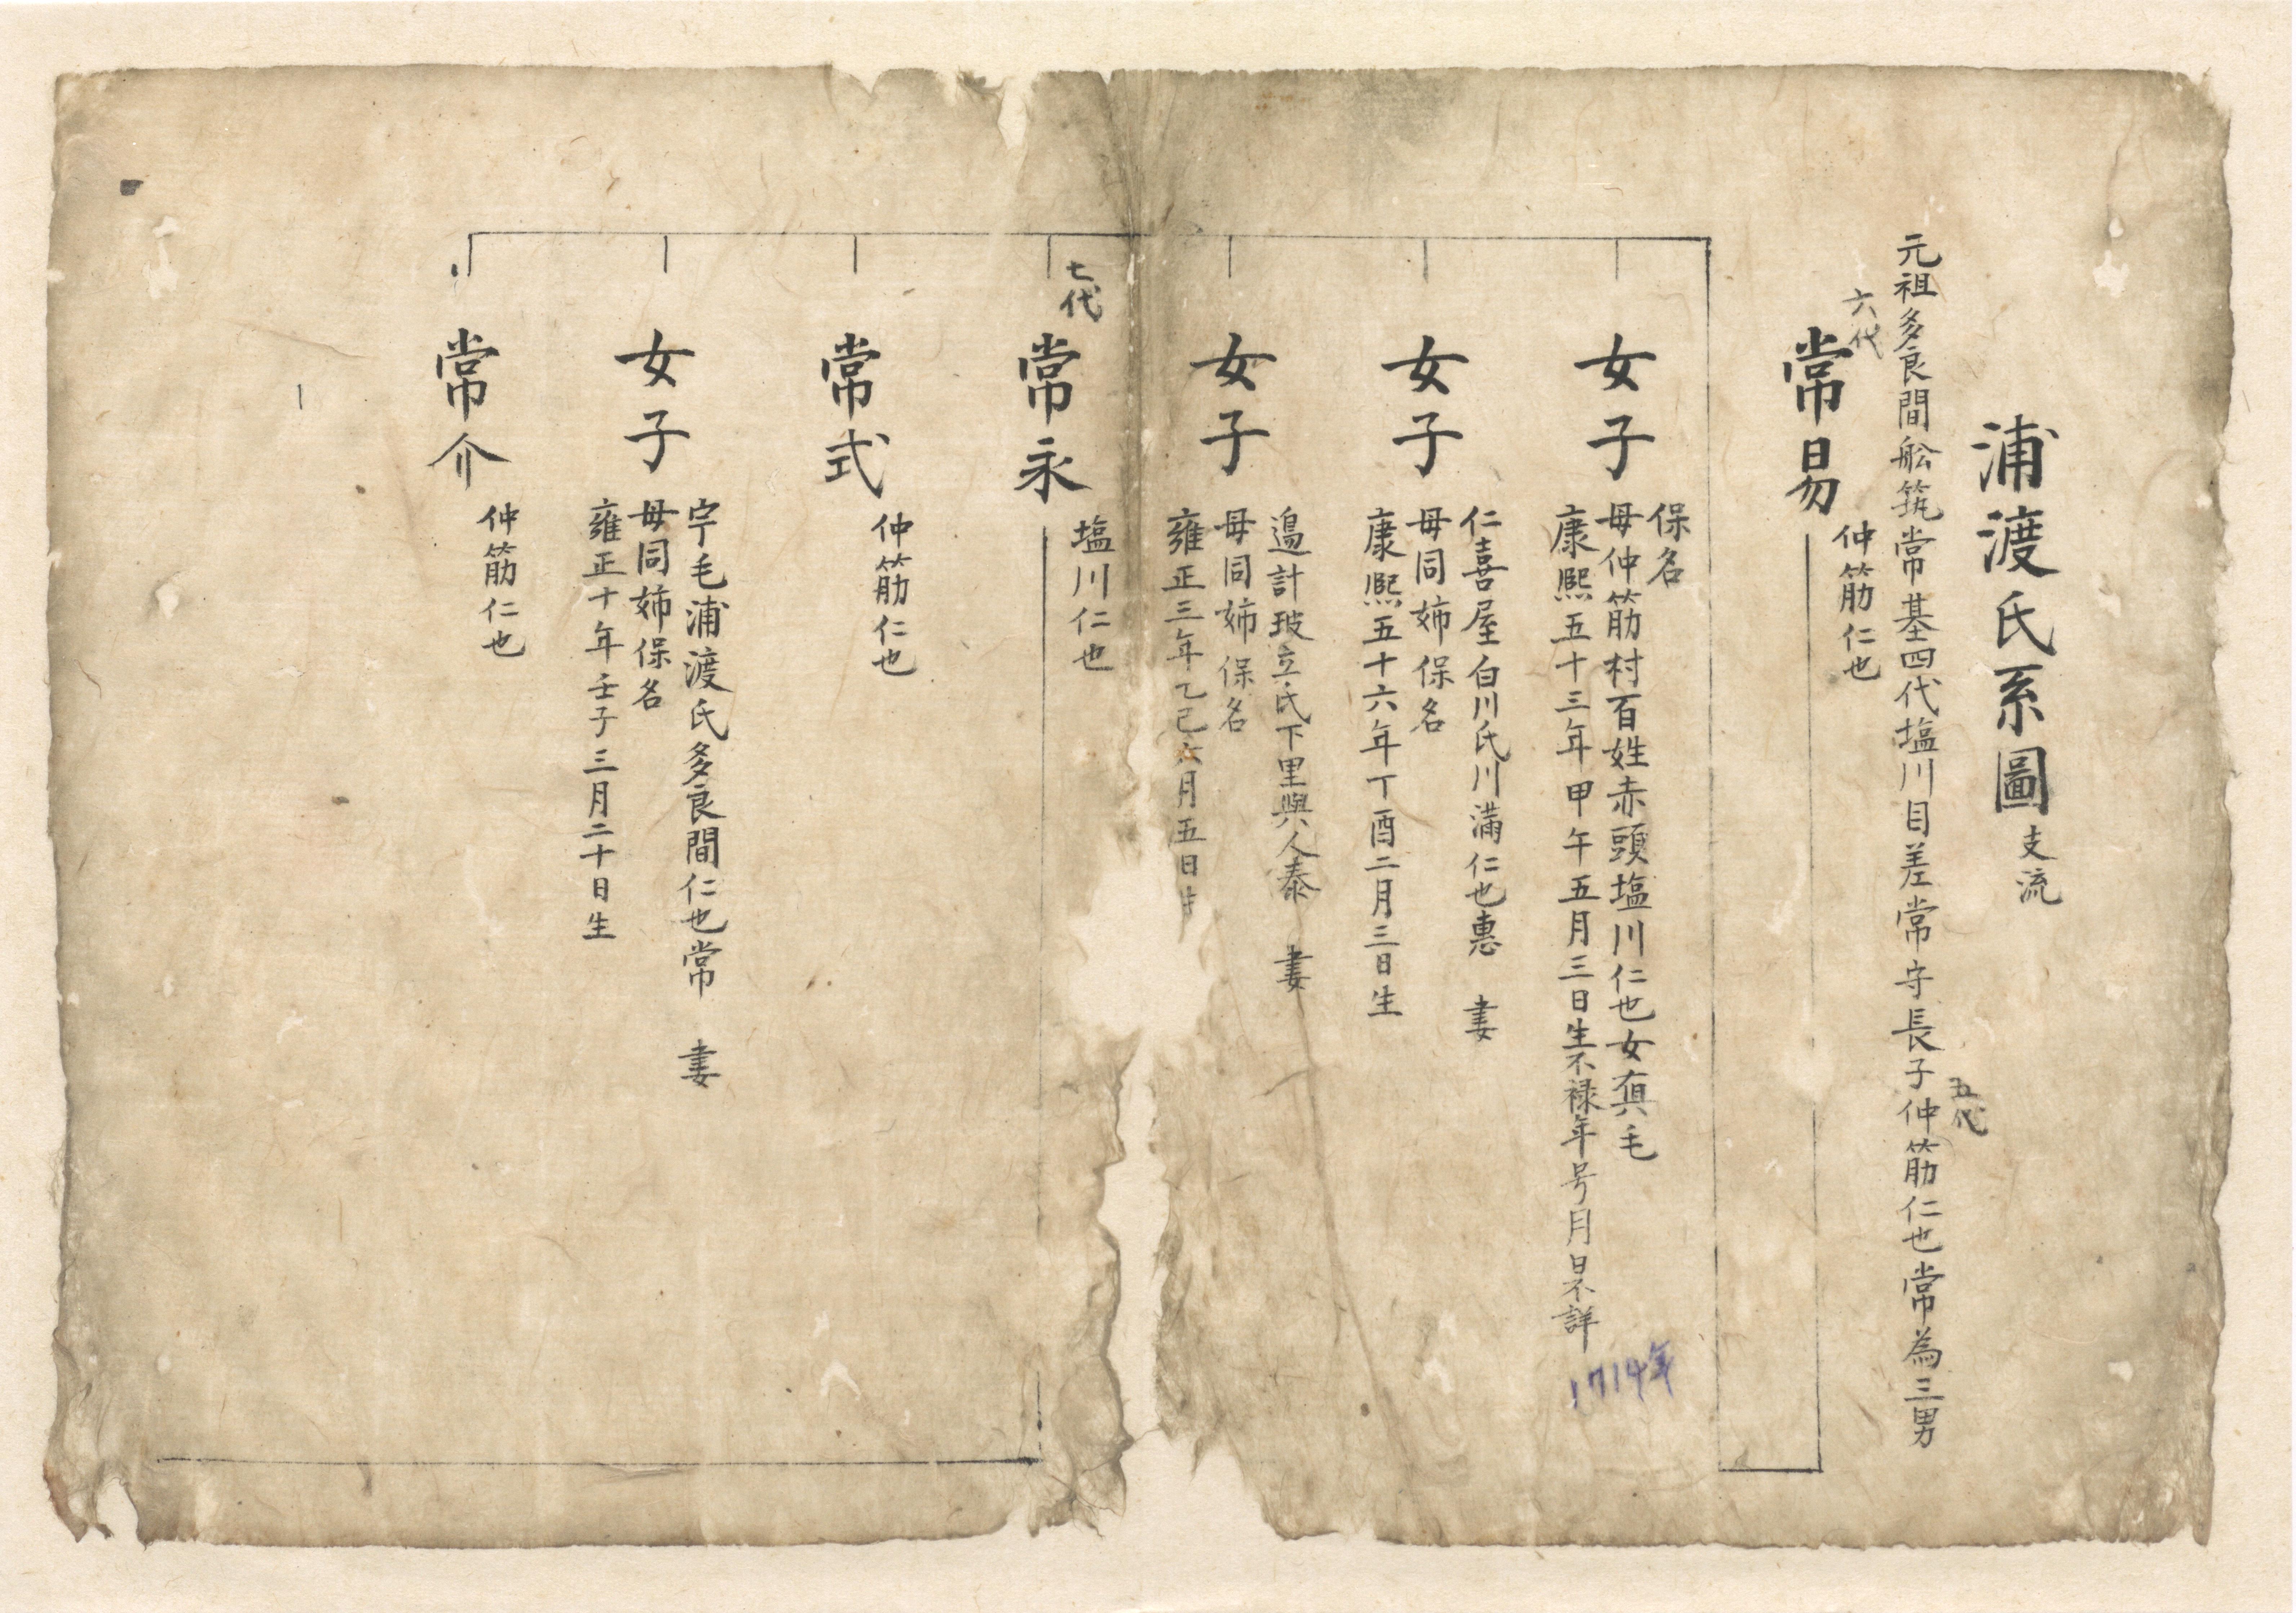 浦渡氏系圖 支流
元祖多良間舩筑常基四代塩川目差常守長子仲筋仁也常為三男
五代
六代
常易 仲筋仁也
女子
保名
母仲筋村百姓赤頭塩川仁也女真毛
康熙五十三年甲午五月三日生不禄年号月日不詳
1714年
女子
仁喜屋白川氏川満仁也惠 妻
母同姉保名
康熙五十六年丁酉二月三日生
女子
邉計玻立氏下里與人泰 妻
母同姉保名
雍正三年乙己六月五日生
七代
常永 塩川仁也
常式 仲筋仁也
女子
宇毛浦渡氏多良間仁也常 妻
母同姉保名
雍正十年壬子三月二十日生
常介 仲筋仁也